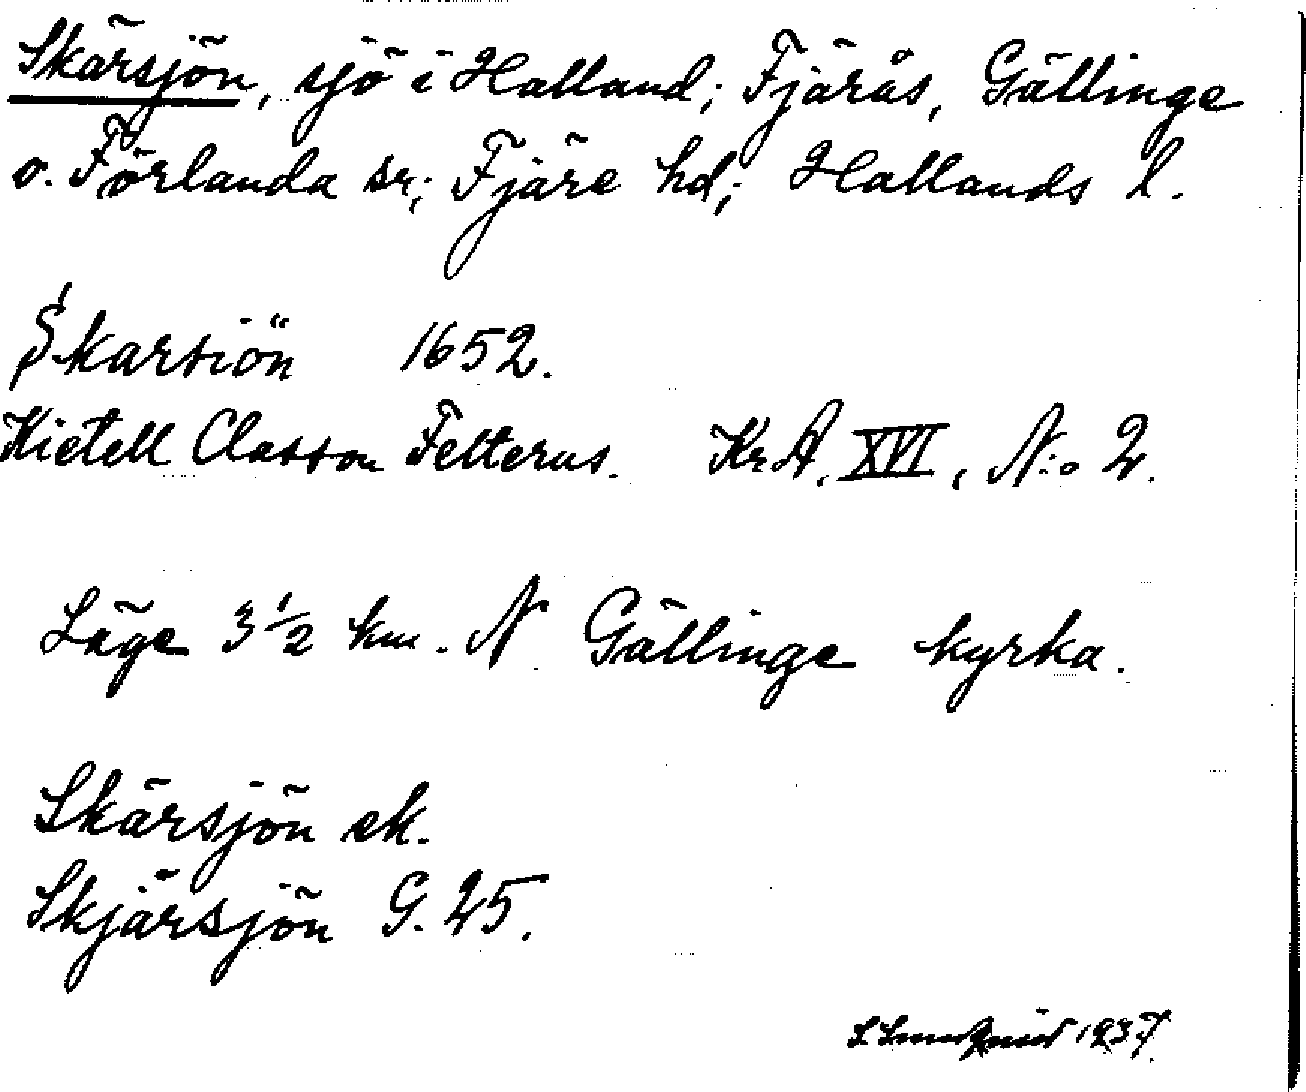 Skärsjön, sjö i Halland; Fjärås, Gällinge
o. Förlanda sr; Fjäre hd; Hallands l.
Skarsiön 1652.
Kietell Classon Felterus. KrA, XVI, N:o 2.
Läge 3 1/2 km. N Gällinge kyrka.
Skärsjön ek.
Skjärsjön G. 25.
S Lundqvist 1937.